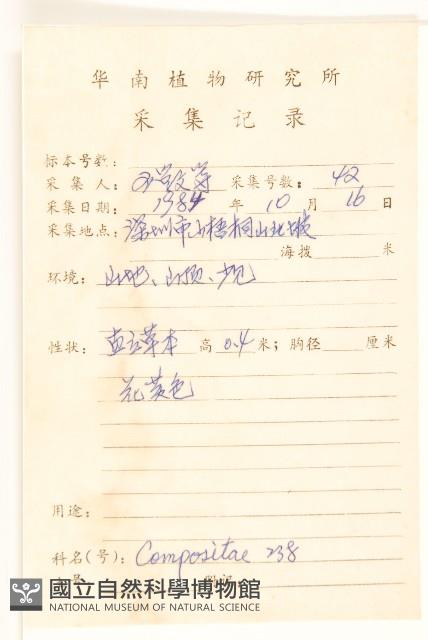 华南植物研究所
采集记录
标本号数:
采集人: 采集号数: 42
采集日期: 1984 年 10 月 16 日
采集地点: 深圳市小梧桐山北坡
海拨 米
环境: 山地、山顶、少见
性状: 直立草本 高 0.4 米; 胸径 厘米
花黄色
用途:
科名(号): Compositae 238
國立自然科學博物館
NATIONAL MUSEUM OF NATURAL SCIENCE